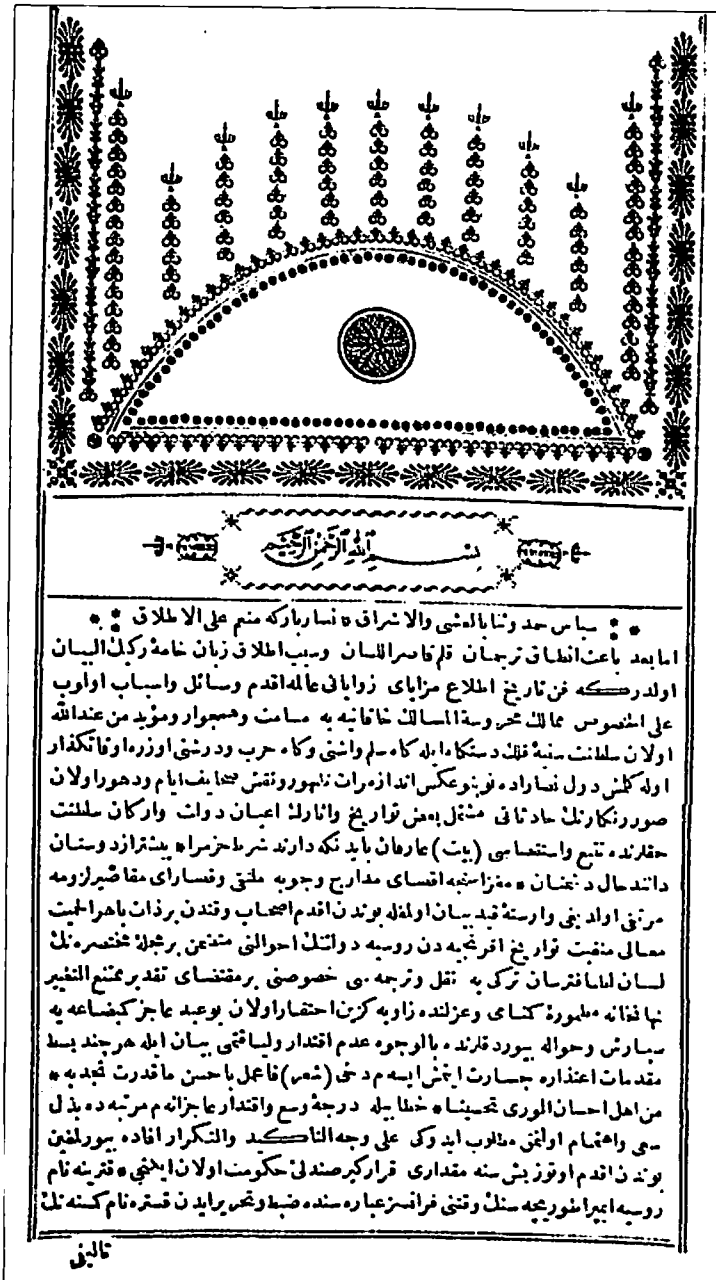 بسم الله الرحمن الرحيم
سپاس حمد وثنا بالعشی والاشراق * نسار بارکه منعم علی الاطلاق
اما بعد باعث انطاق ترجمان قلم قاصر اللسان وسبب اطلاق زبان خامهٔ رکیك البیان
اولدرکه فن تاریخ اطلاع مزایای زوایای عالمه اقدم وسائل واسباب اولوب
علی الخصوص ممالك محروسة المسالك خاقانیه یه مسامت وهمجوار ومؤید من عندالله
اولان سلطنت سنیهٔ فلك دستکاه ایله کاه سلم واشتی وکاه حرب ودرشتی اوزره اوقاتکذار
اوله کلمش دول نصاراده نوبنو عکس اندازمرات ظهور ونقش صحایف ایام ودهور اولان
صور رنکارنك حادثاتی مشتمل بعض تواریخ واثارك اعیان دولت وارکان سلطنت
حقلرنده تتبع واستقصاسی (بیت) عارفان باید نکه دارند شرط حزمرا * بیشتر از دوستان
دانند حال دشمنان * مغزاسنجه اقصای مدارج وجوبه ملتقی وقصارای مقاصیر لزومه
مرتقی اولدیغی وارستهٔ قید بیان اولمغله بوندن اقدم اصحاب وقتدن بر ذات باهر الحمیت
معالی منقبت تواریخ افرنجیه دن روسیه دولتنك احوالنی متضمن بر مجلهٔ مختصره نك
لسان لطافترسان ترکی یه نقل وترجمه سی خصوصنی بر مقتضای تقدیر ممتنع التغییر
نهانخانه مطمورهٔ کمنامی وعزلنده زاویه کزین احتقار اولان بو عبد عاجز کمبضاعه یه
سپارش وحواله بیوردقلرنده بالوجوه عدم اقتدار ولیاقتمی بیان ایله هر چند بسط
مقدمات اعتذاره جسارت ایتمش ایسه م دخی (شعر) فاعمل باحسن ما قدرت تجد به *
من اهل احسان الوری تحسینا * خطابیله درجهٔ وسع واقتدار عاجزانه م مرتبه ده بذل
سعی واهتمام اولنمق مطلوب ایدوکی علی وجه التاکید والتکرار افاده بیورلمغین
بوندن اقدم اوتوز بش سنه مقداری قرارکیر صندلئ حکومت اولان ایکنجی * قترینه نام
روسیه ایمپراطوریچه سنك وقتنی فرانسز عباره سنده ضبط وتحریر ایدن قستره نام کمسنه نك
تالیفی